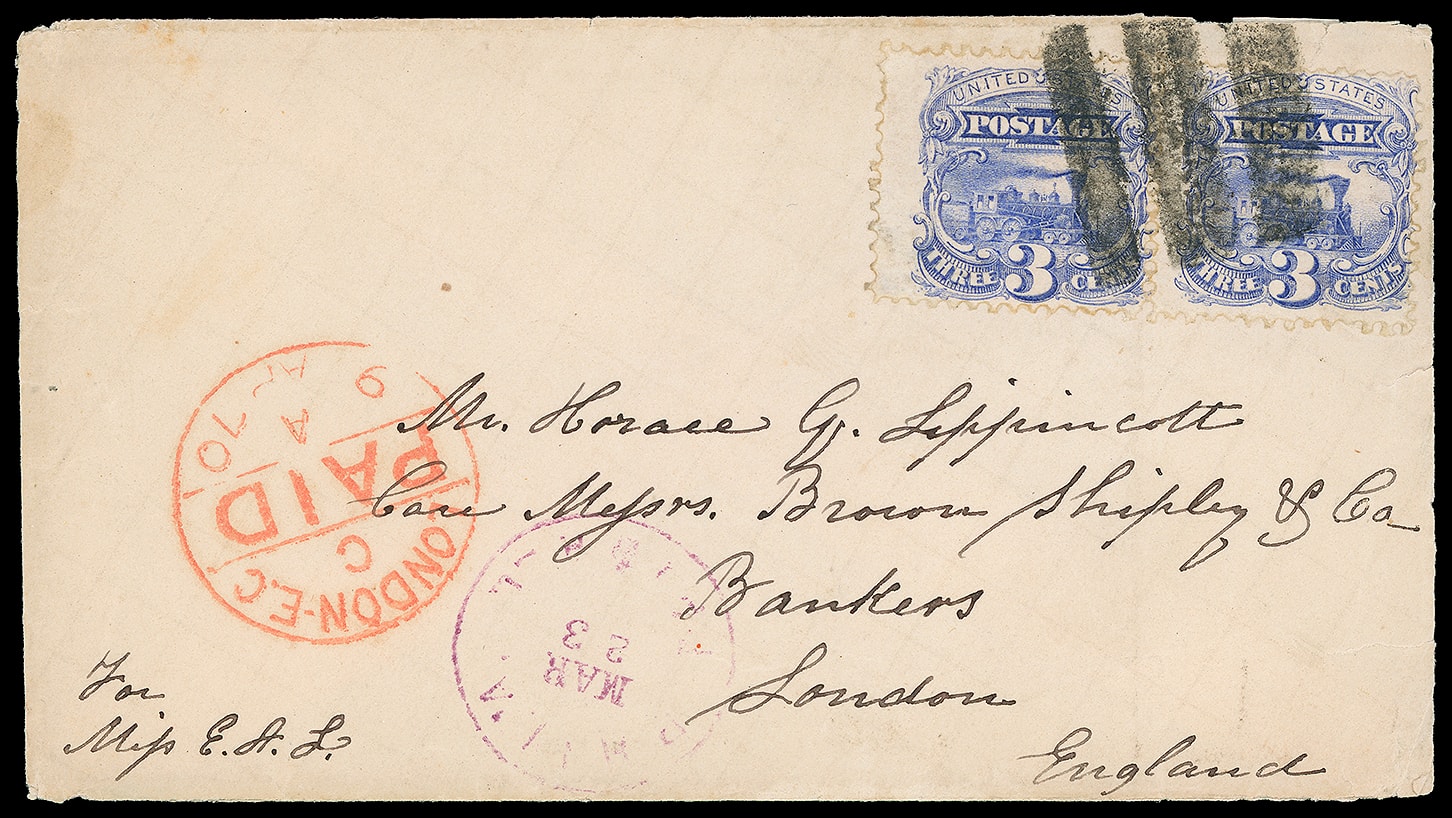 UNITED STATES
POSTAGE
THREE 3 CENTS
UNITED STATES
POSTAGE
THREE 3 CENTS
Mr. Horace G. Lippincott
Care Messrs. Brown Shipley & Co
Bankers
London
England
For
Miss E. H. L.
LONDON-E.C
C
PAID
A
9 AP 70
MAR
23